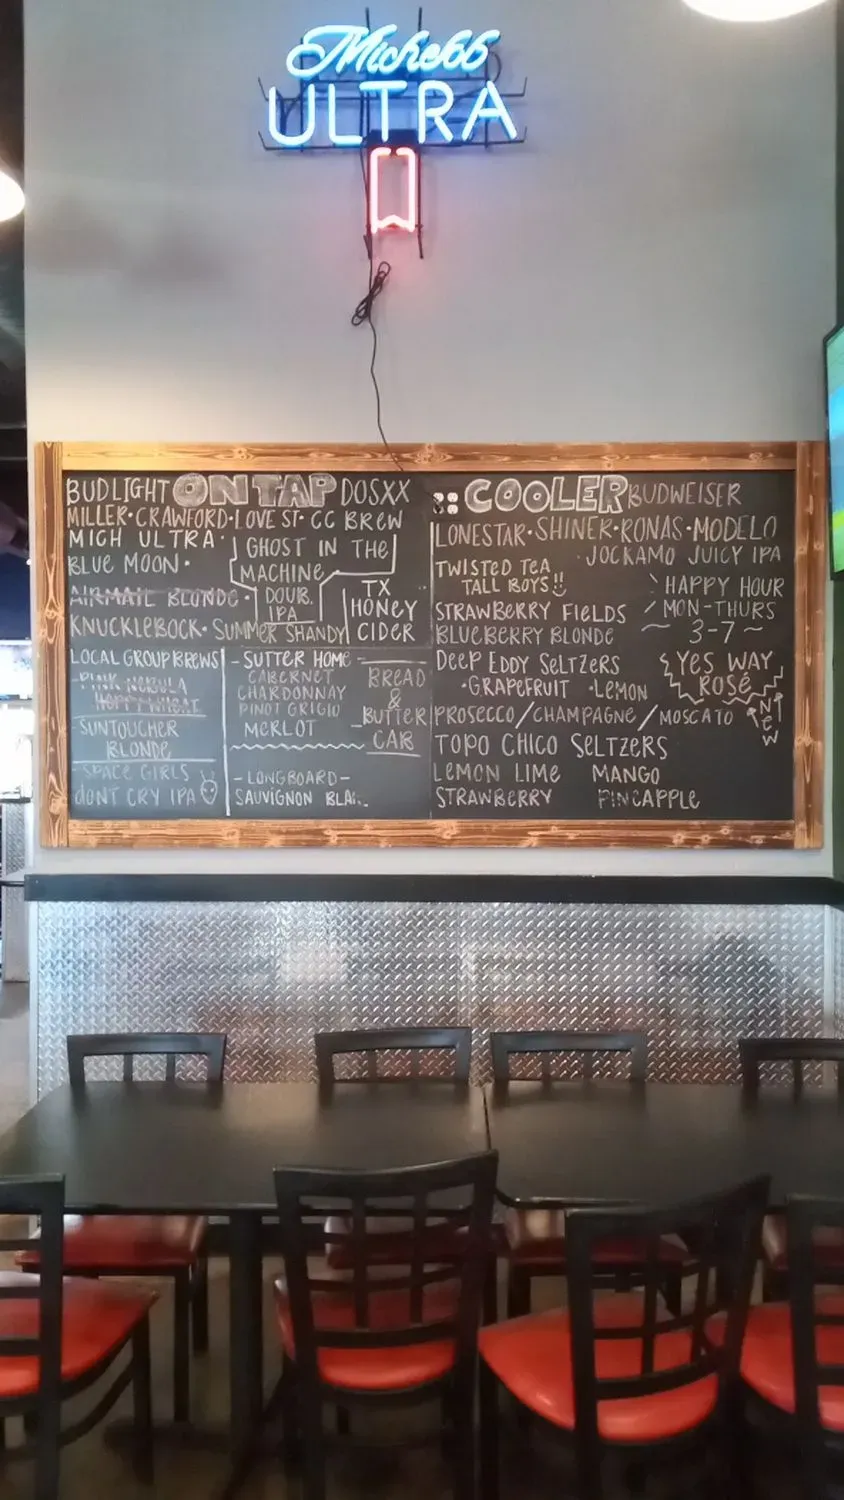 Michelob
ULTRA
BUDLIGHT ON TAP DOSXX
MILLER·CRAWFORD·LOVE ST·CC BREW
MICH ULTRA·
BLUE MOON·
AIRMAIL BLONDE·
KNUCKLEBOCK·SUMMER SHANDY
GHOST IN THE
MACHINE
DOUB.
IPA
TX
HONEY
CIDER
LOCAL GROUP BREWS
PINK NEBULA
HOPPY WHEAT
SUNTOUCHER
BLONDE
SPACE GIRLS
DONT CRY IPA
-SUTTER HOME-
CABERNET
CHARDONNAY
PINOT GRIGIO
MERLOT
-LONGBOARD-
SAUVIGNON BLA..
BREAD
&
BUTTER
CAB
COOLER BUDWEISER
LONESTAR·SHINER·RONAS·MODELO
·JOCKAMO JUICY IPA
TWISTED TEA
TALL BOYS!!
STRAWBERRY FIELDS
BLUEBERRY BLONDE
HAPPY HOUR
MON-THURS
~ 3-7 ~
DEEP EDDY SELTZERS
·GRAPEFRUIT ·LEMON
YES WAY
ROSÉ
NEW
PROSECCO/CHAMPAGNE/MOSCATO
TOPO CHICO SELTZERS
LEMON LIME MANGO
STRAWBERRY PINEAPPLE